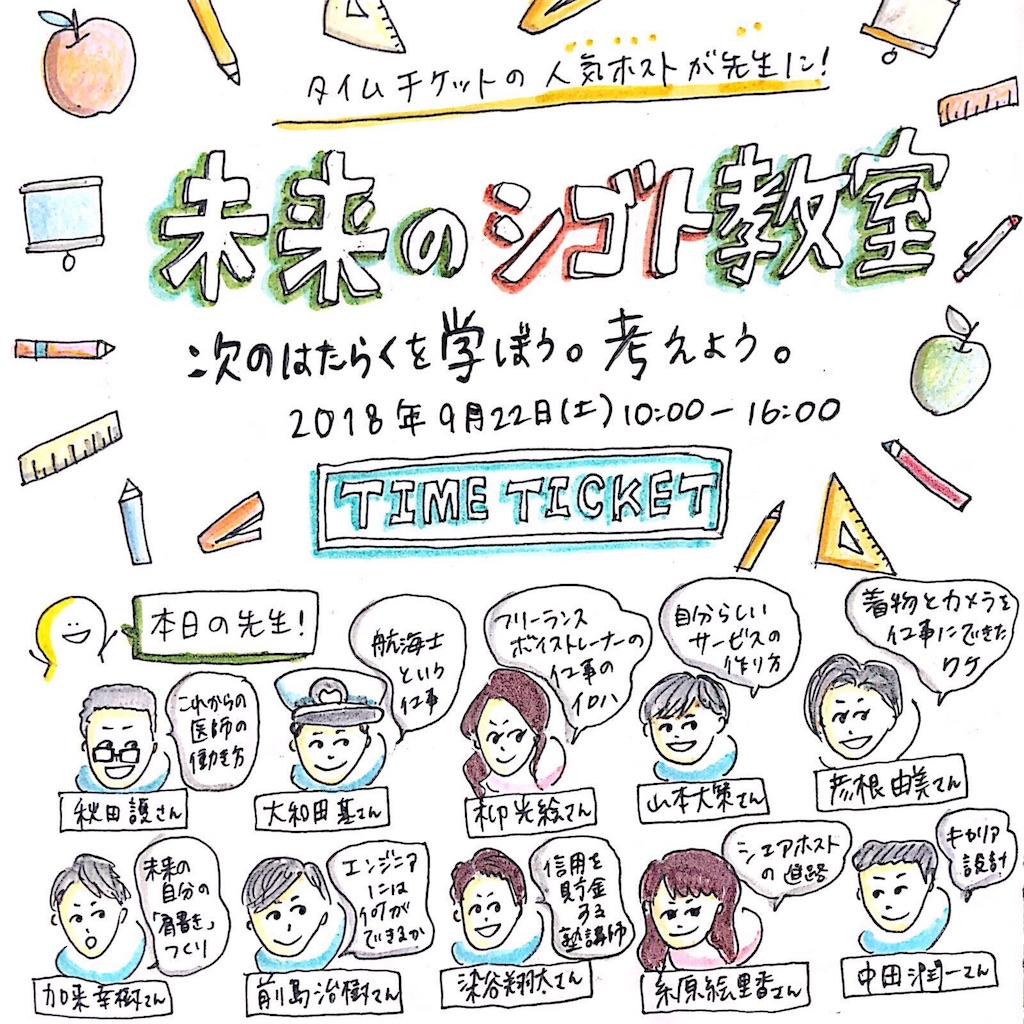 タイムチケットの人気ホストが先生に!
未来のシゴト教室
次のはたらくを学ぼう。考えよう。
2018年9月22日(土)10:00-16:00
TIME TICKET
本日の先生!
これからの
医師の
働き方
秋田護さん
航海士
という
仕事
大和田基さん
フリーランス
ボイストレーナーの
仕事の
イロハ
柳光絵さん
自分らしい
サービスの
作り方
山本大策さん
着物とカメラを
仕事にできた
ワケ
彦根由美さん
未来の
自分の
「肩書き」
つくり
加来幸樹さん
エンジニア
には
何が
できるか
前島治樹さん
信用を
貯金
する
塾講師
染谷翔大さん
シェアホスト
の進路
糸原絵里香さん
キャリア
設計
中田潤一さん